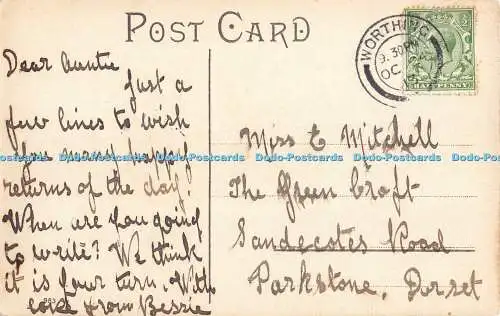 POST CARD
WORTHING
9.30 PM
OC
HALFPENNY
Dear Auntie
Just a
few lines to wish
you many happy
returns of the day
When are you going
to write? We think
it is your turn. With
love from Bessie
Miss E Mitchell
The Green Croft
Sandecotes Road
Parkstone, Dorset
Dodo-Postcards Dodo-Postcards Dodo-Postcards Dodo-Postcards Dodo-Postcards Dodo-Postcards